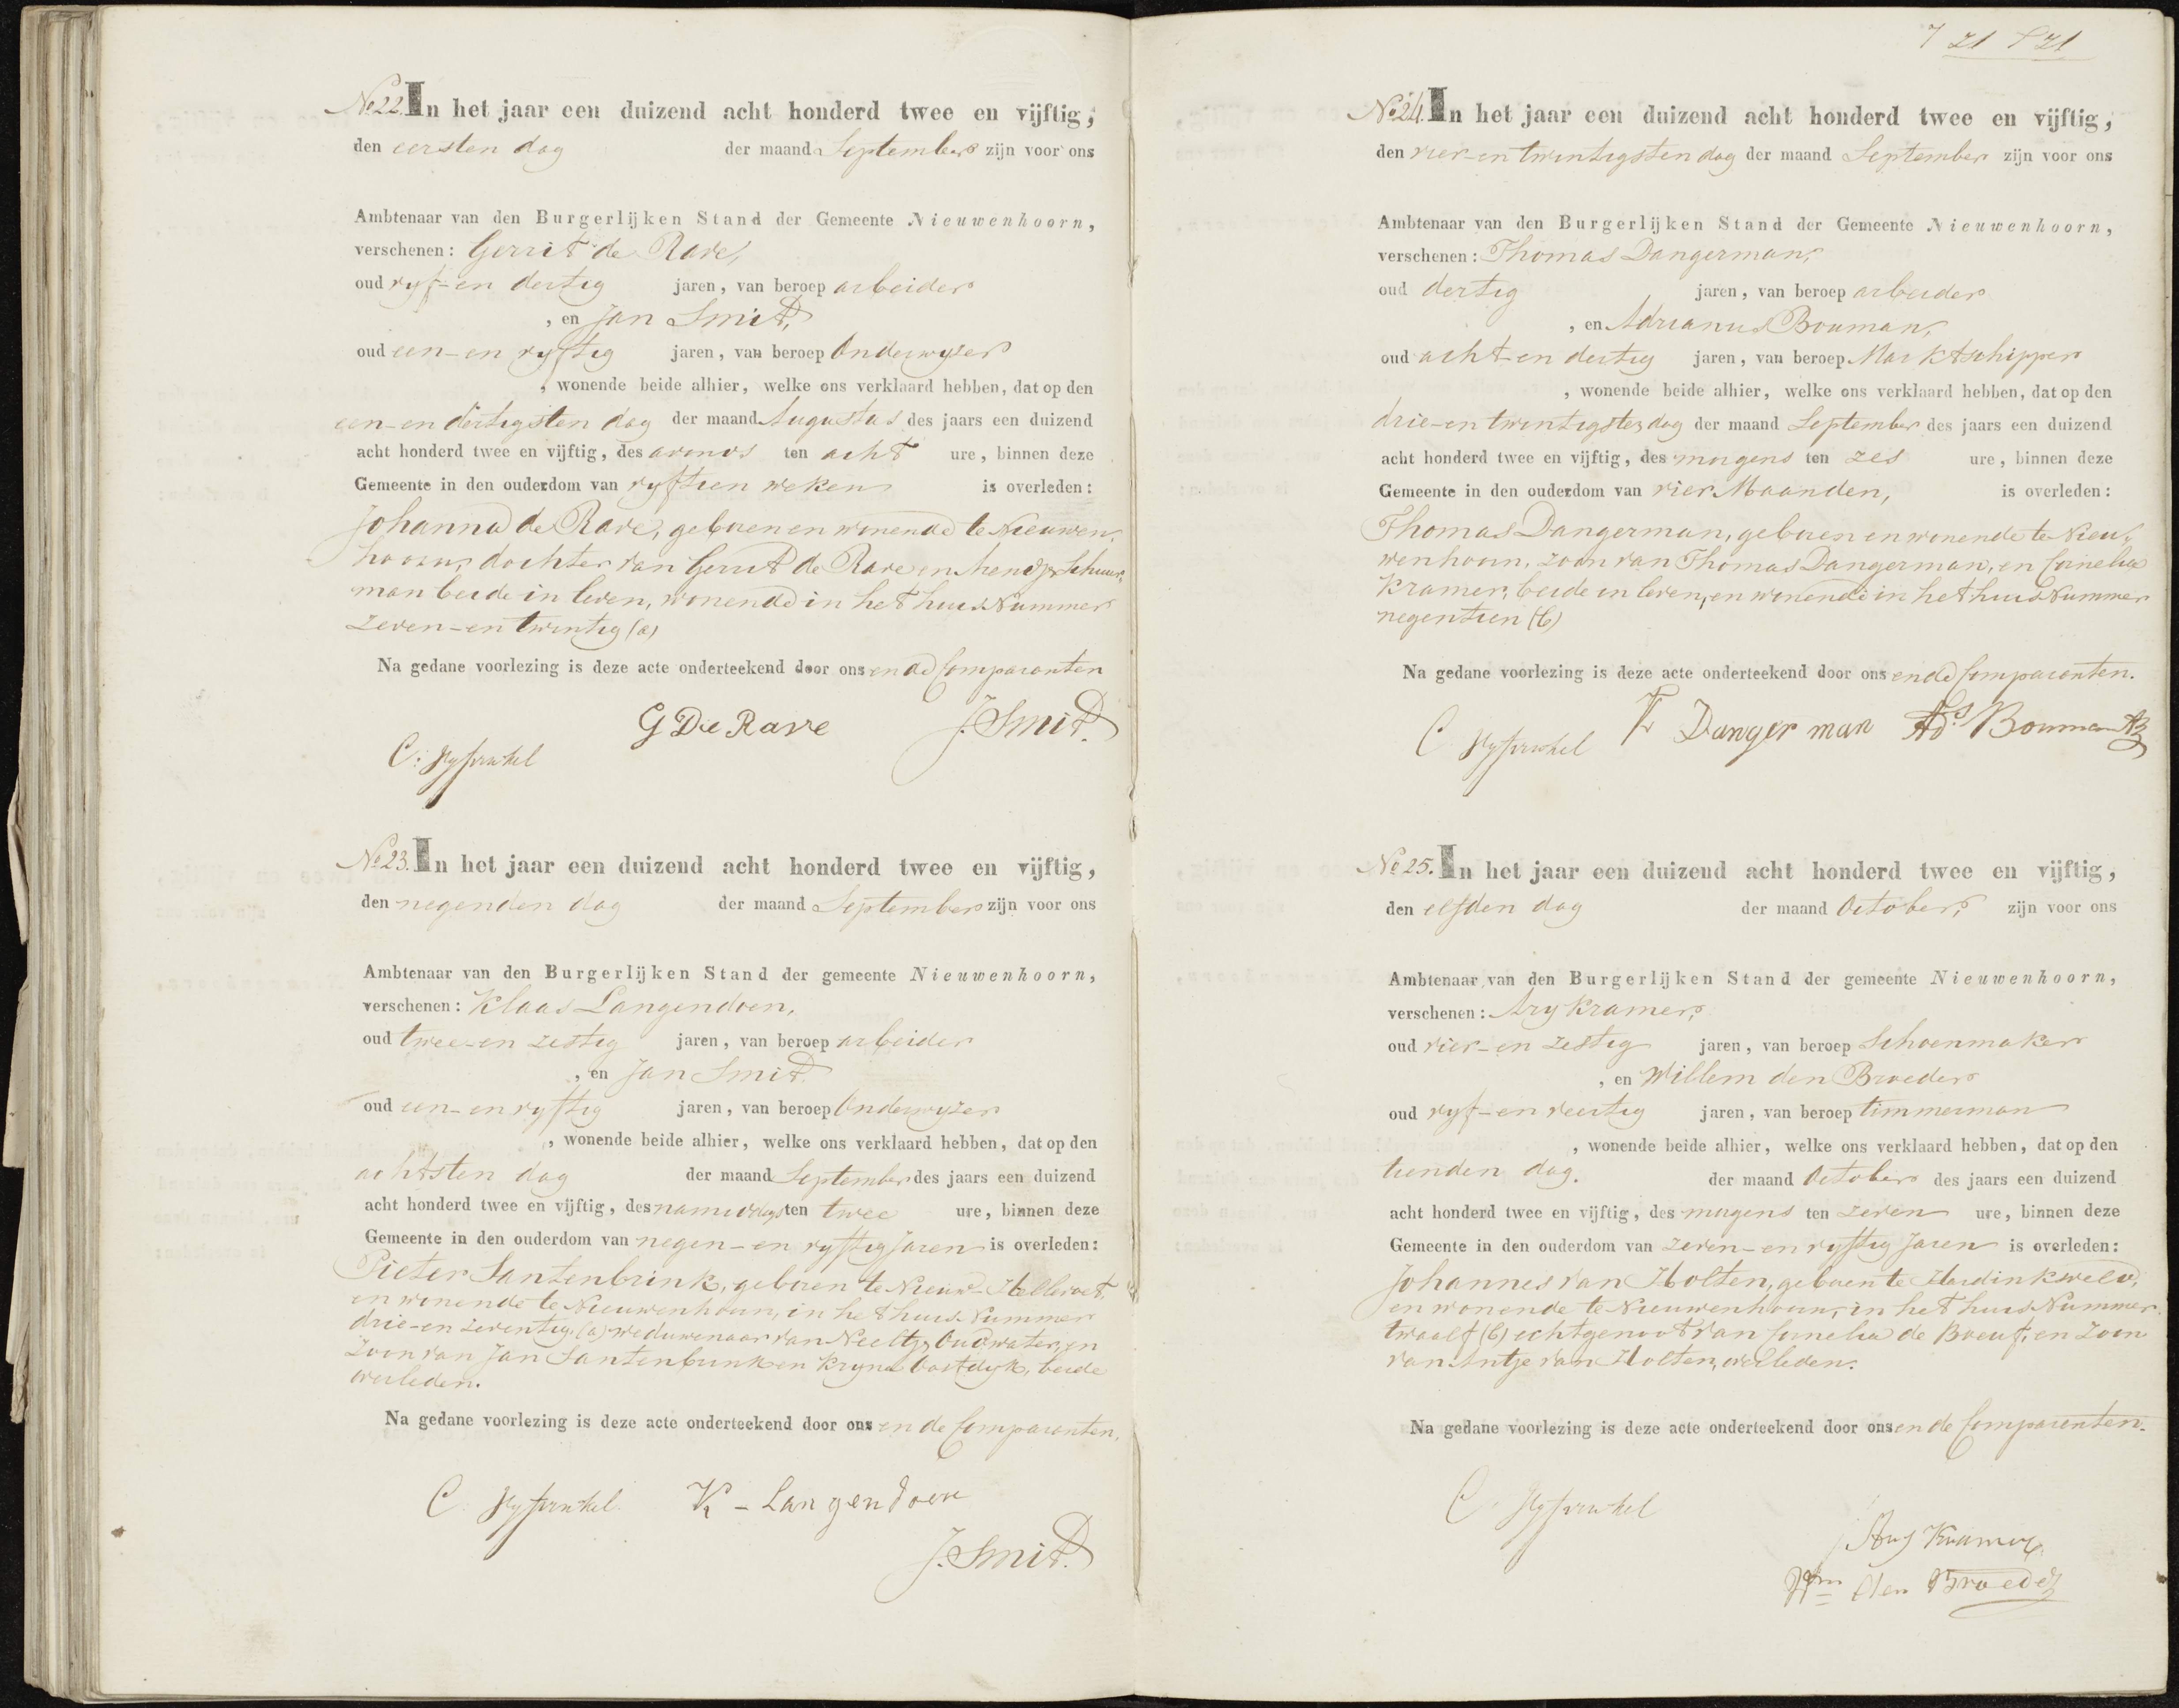 No 22. In het jaar een duizend acht honderd twee en vijftig,
den eersten dag der maand September zijn voor ons
Ambtenaar van den Burgerlijken Stand der Gemeente Nieuwenhoorn,
verschenen: Gerrit de Rave,
oud vyf-en dertig jaren, van beroep arbeider
, en Jan Smit,
oud een-en vyftig jaren, van beroep Onderwyzer
, wonende beide alhier, welke ons verklaard hebben, dat op den
een-en dertigsten dag der maand Augustus des jaars een duizend
acht honderd twee en vijftig, des avonds ten acht ure, binnen deze
Gemeente in den ouderdom van vyftien weken is overleden:
Johanna de Rave, geboren en wonende te Nieuwen-
hoorn, dochter van Gerrit de Rave en Schuur-
man beide in leven, wonende in het huis Nummer
zeven-en twintig (a)
Na gedane voorlezing is deze acte onderteekend door ons en de Comparanten
G De Rave J. Smit.
C:
No 23. In het jaar een duizend acht honderd twee en vijftig,
den negenden dag der maand September zijn voor ons
Ambtenaar van den Burgerlijken Stand der gemeente Nieuwenhoorn,
verschenen: Klaas Langendoen,
oud twee-en zestig jaren, van beroep arbeider
, en Jan Smit.
oud een-en vyftig jaren, van beroep Onderwyzer
, wonende beide alhier, welke ons verklaard hebben, dat op den
achtsten dag der maand September des jaars een duizend
acht honderd twee en vijftig, des namiddags ten twee ure, binnen deze
Gemeente in den ouderdom van negen-en vyftig Jaren is overleden:
Pieter Santenbrink, geboren te Nieuw-Hellevoet,
en wonende te Nieuwenhoorn, in het huis Nummer
drie-en zeventig (a) weduwenaar van Neeltje Oudwater, en
zoon van Jan Santenbrink en Kryna Oostdyk, beide
overleden.
Na gedane voorlezing is deze acte onderteekend door ons en de Comparanten.
C: K - Langendoen
J. Smit.
7 21 f 21
No 24. In het jaar een duizend acht honderd twee en vijftig,
den vier-en twintigsten dag der maand September zijn voor ons
Ambtenaar van den Burgerlijken Stand der Gemeente Nieuwenhoorn,
verschenen: Thomas Dangerman,
oud dertig jaren, van beroep arbeider
, en Adrianus Bouman,
oud acht-en dertig jaren, van beroep Marktschipper
, wonende beide alhier, welke ons verklaard hebben, dat op den
drie-en twintigsten dag der maand September des jaars een duizend
acht honderd twee en vijftig, des morgens ten zes ure, binnen deze
Gemeente in den ouderdom van vier Maanden, is overleden:
Thomas Dangerman, geboren en wonende te Nieu-
wenhoorn, zoon van Thomas Dangerman, en Cornelia
Kramer, beide in leven, en wonende in het huis Nummer
negentien (b)
Na gedane voorlezing is deze acte onderteekend door ons en de Comparanten.
C T Dangerman Ads Bouman
No 25. In het jaar een duizend acht honderd twee en vijftig,
den elfden dag der maand October, zijn voor ons
Ambtenaar van den Burgerlijken Stand der gemeente Nieuwenhoorn,
verschenen: Ary Kramer,
oud vier-en zestig jaren, van beroep Schoenmaker
, en Willem den Broeder
oud vyf-en veertig jaren, van beroep timmerman
, wonende beide alhier, welke ons verklaard hebben, dat op den
tienden dag. der maand October des jaars een duizend
acht honderd twee en vijftig, des morgens ten zeven ure, binnen deze
Gemeente in den ouderdom van zeven-en vyftig Jaren is overleden:
Johannes van Holten, geboren te Hardinksveld,
en wonende te Nieuwenhoorn, in het huis Nummer
twaalf (b) echtgenoot van Cornelia de Boeuf, en zoon
van Antje van Holten, overleden.
Na gedane voorlezing is deze acte onderteekend door ons en de Comparenten.
C
Ary Kramer
Wm den Broeder